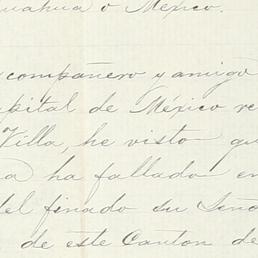 uahua o México.
compañero y amigo
apital de México re
Villa, he visto qu
a ha fallado en
del finado su Seño
de este Canton de